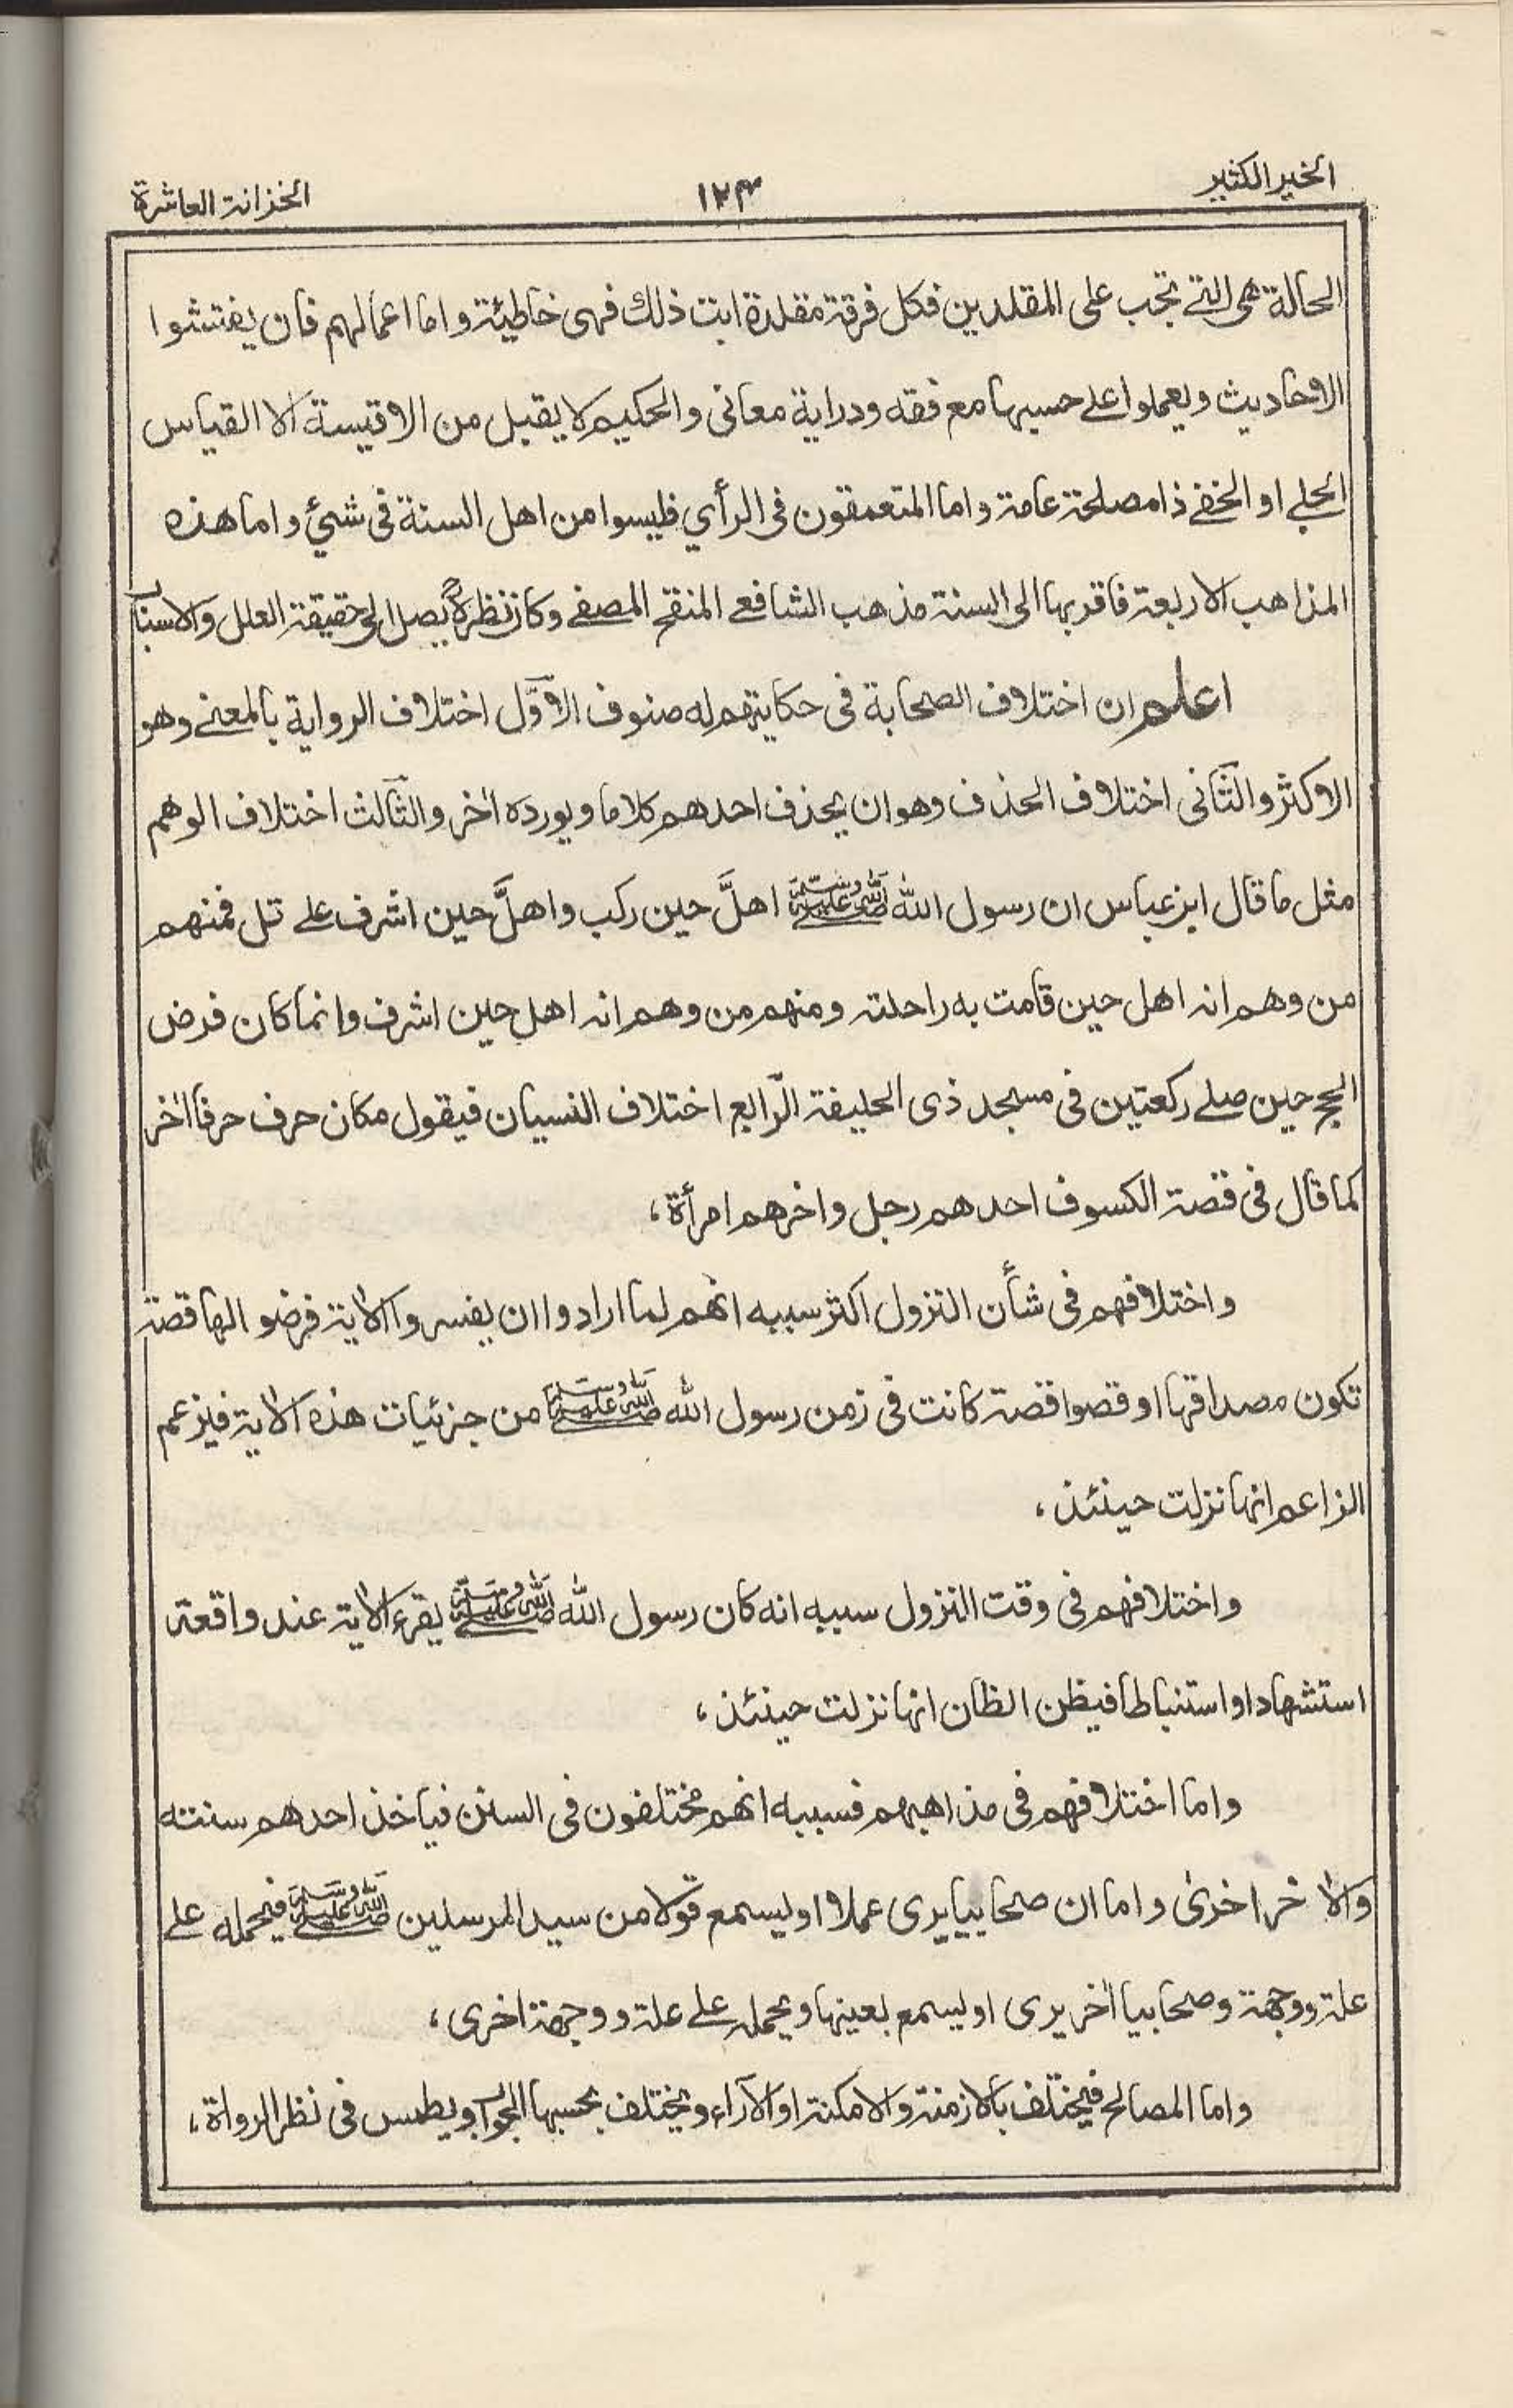 الخير الكثير
١٢٤
الخزانة العاشرة
الحالة هى التے تجب على المقلدين فكل فرقة مقلدة ابت ذلك فهى خاطيئة واما اعمالهم فان يفتشوا
الاحاديث ويعملوا علے حسبها مع فقه ودراية معانى والحكيم لا يقبل من الاقيسة الا القياس
الجلے او الخفے ذا مصلحة عامة واما المتعمقون فى الرأي فليسوا من اهل السنة فى شيئ واما هذه
المذاهب الاربعة فاقربها الى السنة مذهب الشافعے المنقح المصفے وكان نظره يصل الى حقيقة العلل والاسباب
اعلم ان اختلاف الصحابة فى حكايتهم له صنوف الاوّل اختلاف الرواية بالمعنے وهو
الاكثر والثانى اختلاف الحذف وهو ان يحذف احدهم كلاما ويورده اٰخر والثالث اختلاف الوهم
مثل ما قال ابن عباس ان رسول الله ﷺ اهلَّ حين ركب واهلَّ حين اشرف علے تل فمنهم
من وهم انه اهل حين قامت به راحلته ومنهم من وهم انه اهل حين اشرف وانما كان فرض
الحج حين صلے ركعتين فى مسجد ذى الحليفة الرّابع اختلاف النسيان فيقول مكان حرف حرفا اٰخر
كما قال فى قصة الكسوف احدهم رجل واخرهم امرأة،
واختلافهم فى شأن النزول اكثر سببه انهم لما ارادوا ان يفسروا الاٰية فرضوا لها قصة
تكون مصداقها او قصوا قصة كانت فى زمن رسول الله ﷺ من جزئيات هذه الاٰية فيزعم
الزاعم انها نزلت حينئذ،
واختلافهم فى وقت النزول سببه انه كان رسول الله ﷺ يقرء الاٰية عند واقعة
استشهادا او استنباطا فيظن الظان انها نزلت حينئذ،
واما اختلافهم فى مذاهبهم فسببه انهم مختلفون فى السنن فياخذ احدهم سنته
والاٰخر اخرىٰ واما ان صحابيا يرى عملا او يسمع قولا من سيد المرسلين ﷺ فيحمله علے
علة ووجهة وصحابيا اٰخر يرى او يسمع بعينها ويحمله علے علة ووجهة اخرى،
واما المصالح فيختلف بالازمنة والامكنة او الآراء ويختلف بحسبها الجواب ويطمس فى نظر الرواة،